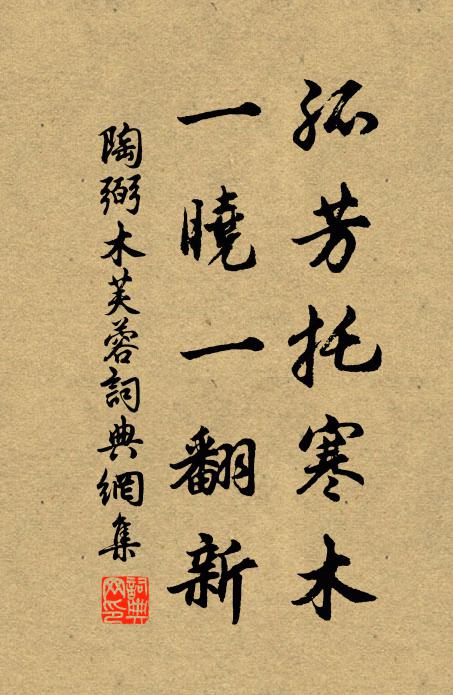 孤芳托寒木
一曉一翻新
陶弼木芙蓉詞典網集
詞典网印